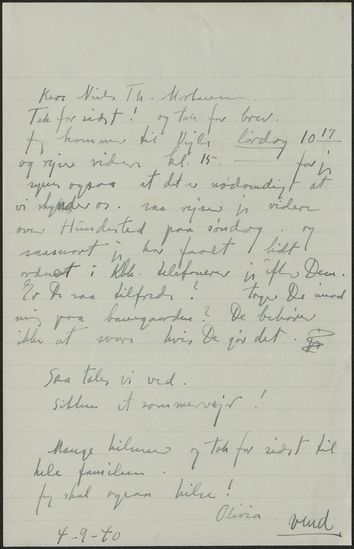 Kære Niels Th. Mortensen.
Tak for sidst! og tak for brev.
Jeg kommer til Vejle lördag 10 17
og rejser videre kl. 15. — for jeg
synes ogsaa at det er nødvendigt at
vi skynder os. saa rejser jeg videre
over Hundested paa søndag. og
saasnart jeg har faaet lidt
ordnet i Kbh. telefonerer jeg efter Dem.
Er De saa tilfreds? tager De imod
mig paa banegaarden? De behøver
ikke at svare hvis De gör det.
Saa tales vi ved.
Sikken et sommervejr!
Mange hilsner og tak for sidst til
hele familien.
Jeg skal ogsaa hilse!
Olivia
4-9-40
vend